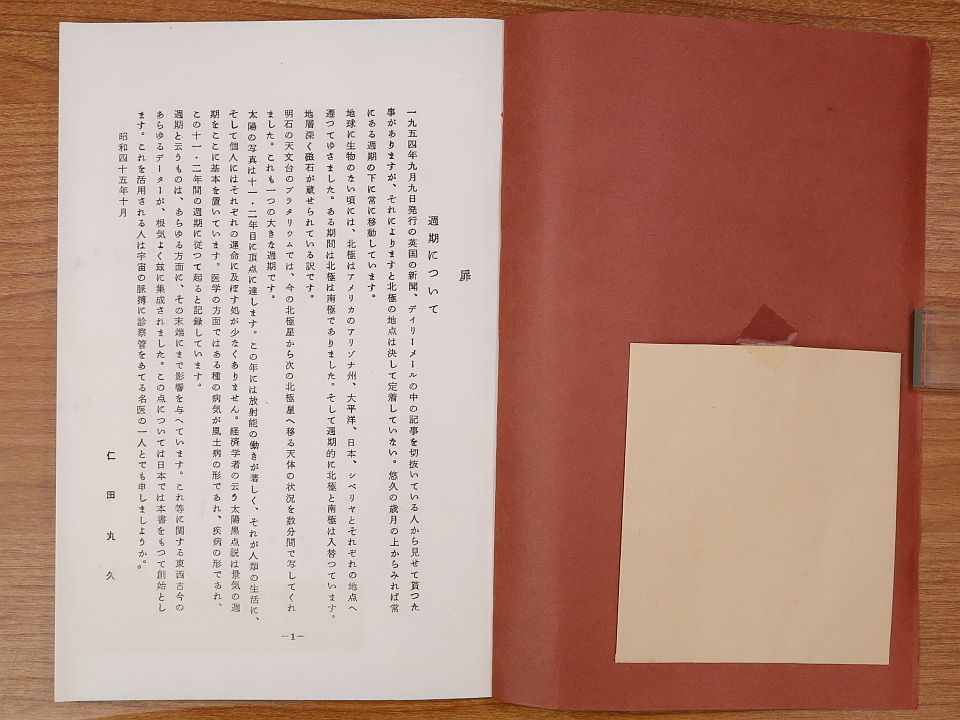 扉
週期について
一九五四年九月九日発行の英国の新聞、デイリーメールの中の記事を切抜いている人から見せて貰つた
事がありますが、それによりますと北極の地点は決して定着していない。悠久の歳月の上からみれば常
にある週期の下に常に移動しています。
地球に生物のない頃には、北極はアメリカのアリゾナ州、大平洋、日本、シベリヤとそれぞれの地点へ
遷つてゆきました。ある期間は北極は南極でありました。そして週期的に北極と南極は入替つています。
地層深く磁石が蔵せられている訳です。
明石の天文台のプラタリウムでは、今の北極星から次の北極星へ移る天体の状況を数分間で写してくれ
ました。これも一つの大きな週期です。
太陽の写真は十一・二年目に頂点に達します。この年には放射能の働きが著しく、それが人類の生活に、
そして個人にはそれぞれの運命に及ぼす処が少なくありません。経済学者の云う太陽黒点説は景気の週
期をここに基本を置いています。医学の方面ではある種の病気が風土病の形であれ、疾病の形であれ、
この十一・二年間の週期に従つて起ると記録しています。
週期と云うものは、あらゆる方面に、その末端にまで影響を与へています。これ等に関する東西古今の
あらゆるデーターが、根気よく玆に集成されました。この点については日本では本書をもつて創始とし
ます。これを活用される人は宇宙の脈搏に診察管をあてる名医の一人とでも申しましようか。
昭和四十五年十月
仁田丸久
―1―